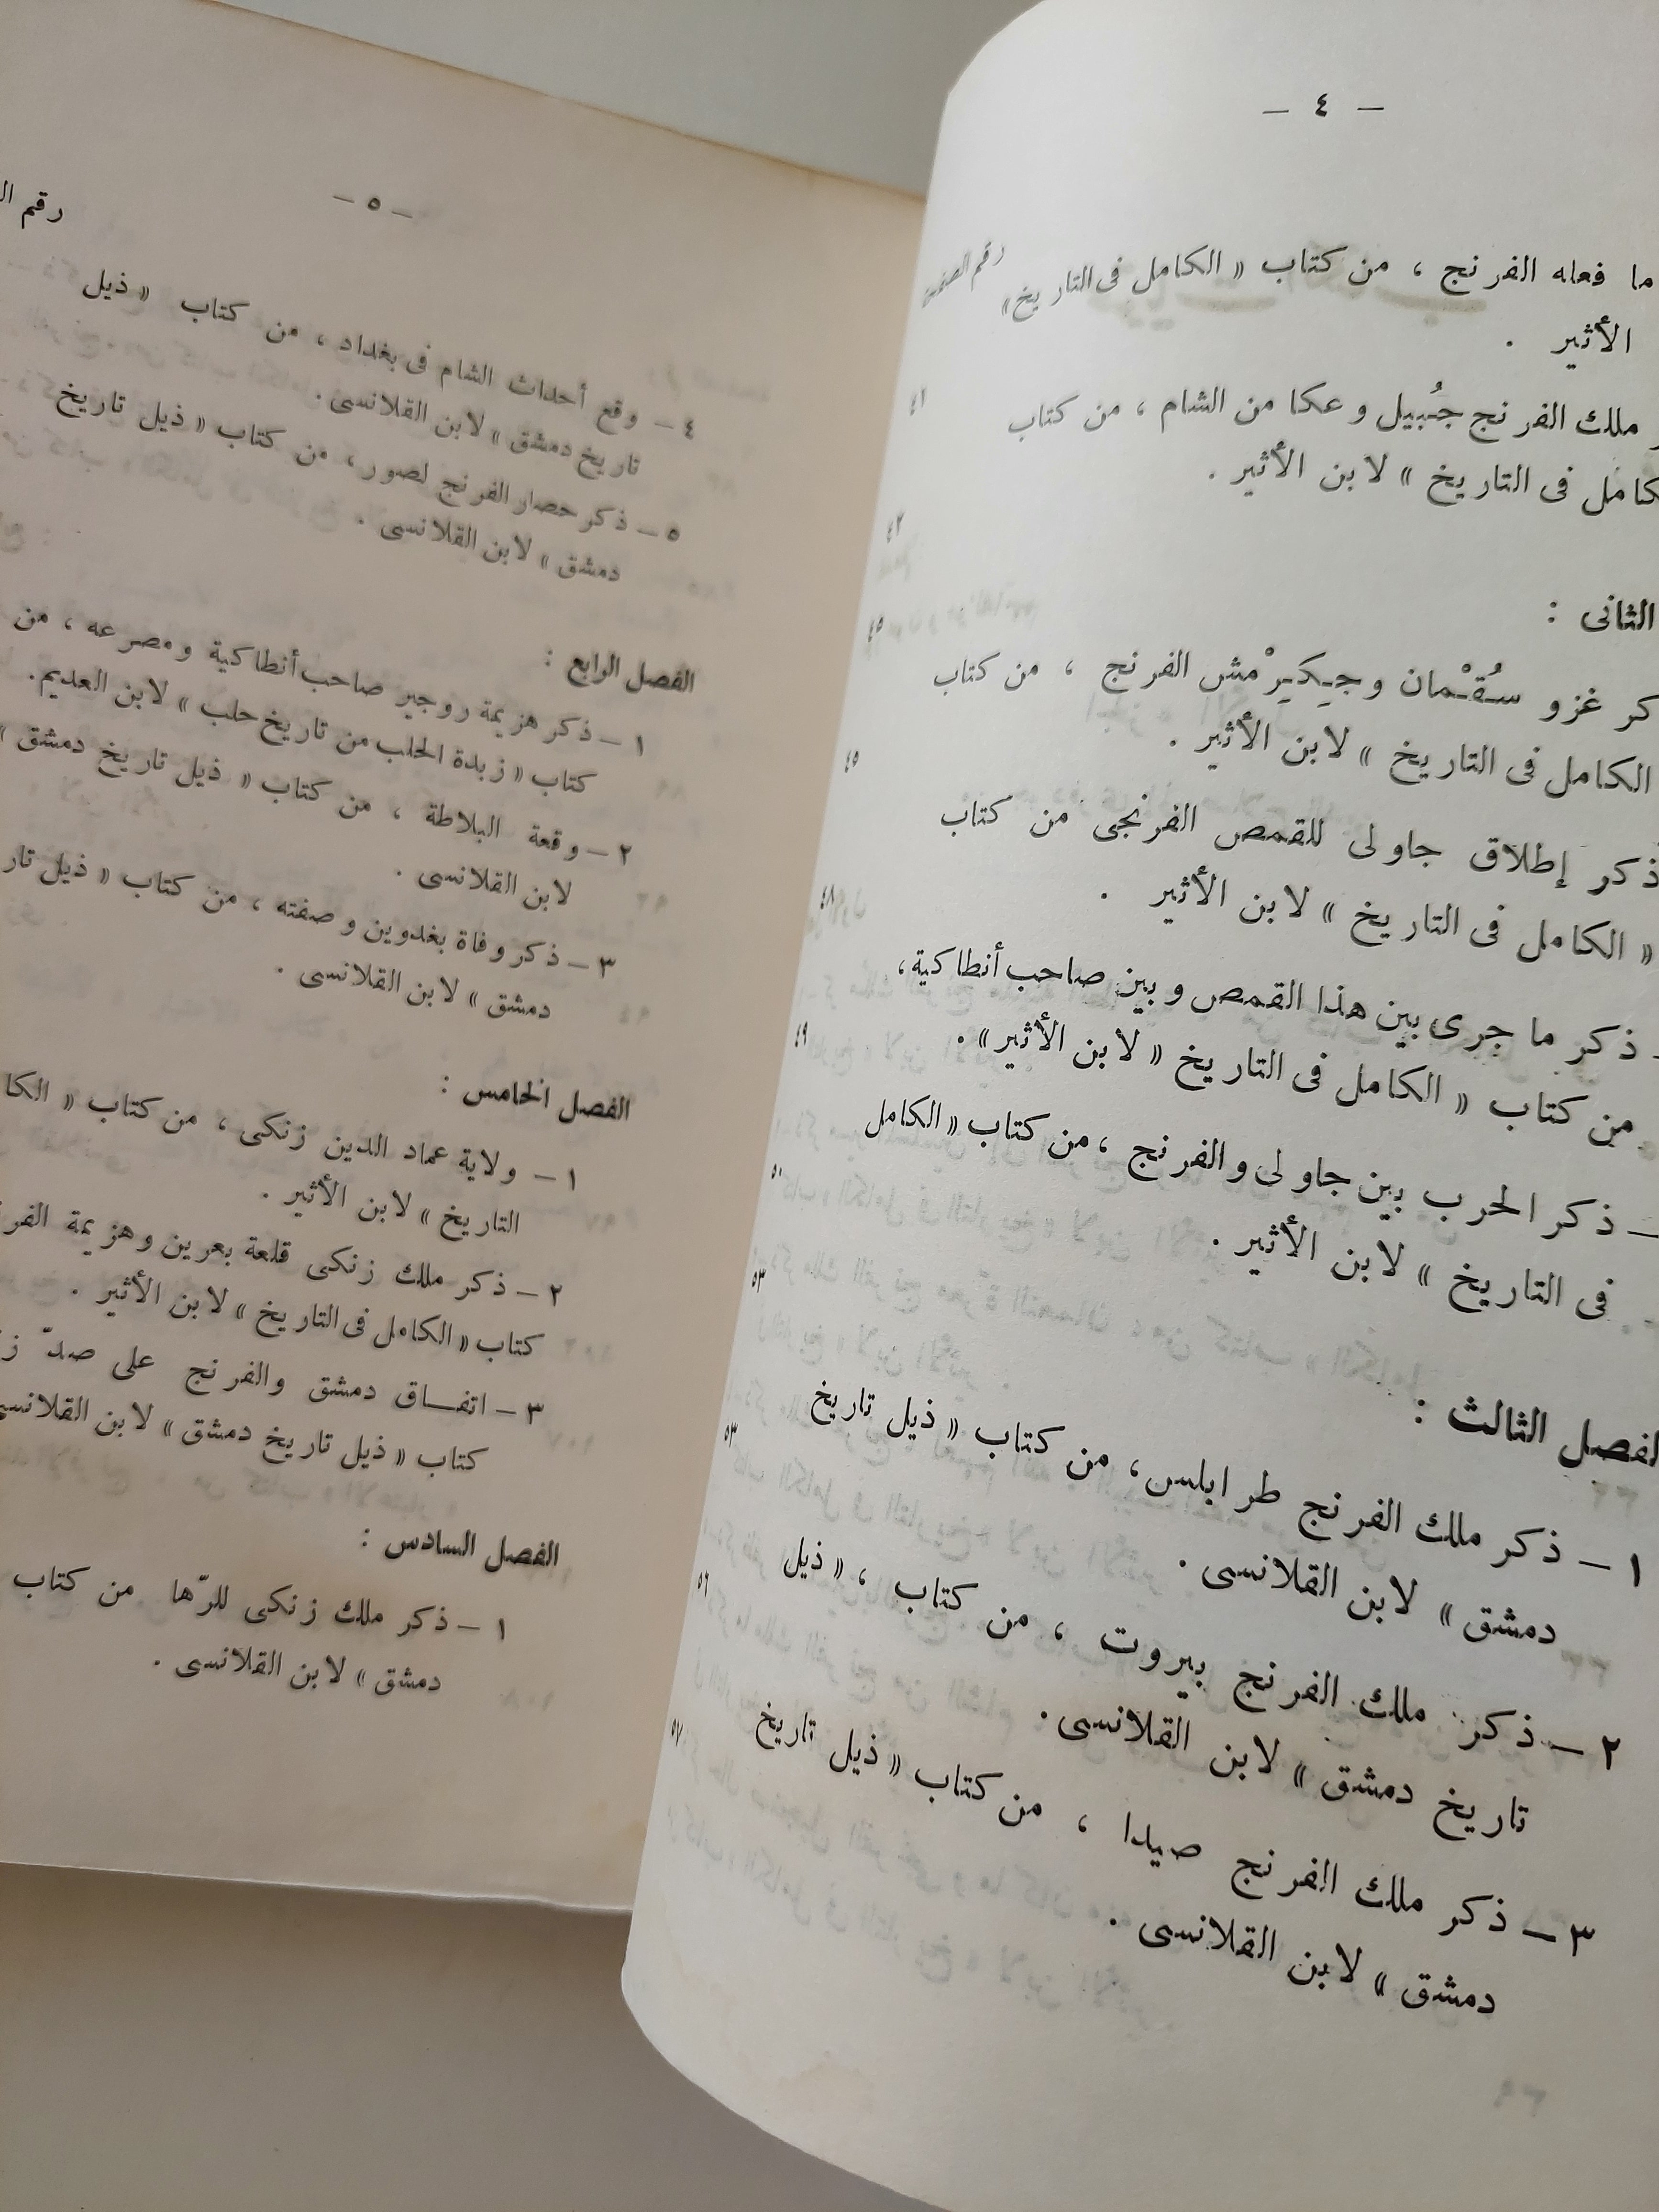 — ٤ —
رقم الصفحة
ما فعله الفرنج ، من كتاب « الكامل فى التاريخ»
الأثير .
ملك الفرنج جُبيل وعكا من الشام ، من كتاب ٤١
كامل فى التاريخ » لابن الأثير .
٤٢
الثانى :
كر غزو سُقْمان وجِكِرْمش الفرنج ، من كتاب ٤٥
الكامل فى التاريخ » لابن الأثير .
ذكر إطلاق جاولى للقمص الفرنجى من كتاب ٤٥
« الكامل فى التاريخ » لابن الأثير .
ذكر ما جرى بين هذا القمص وبين صاحب أنطاكية، ٤٨
من كتاب « الكامل فى التاريخ « لابن الأثير» .
— ذكر الحرب بين جاولى والفرنج ، من كتاب « الكامل ٤٩
فى التاريخ » لابن الأثير .
٥١
الفصل الثالث : ٥٣
١ — ذكر ملك الفرنج طرابلس، من كتاب « ذيل تاريخ ٥٣
دمشق » لابن القلانسى .
٢ — ذكر ملك الفرنج بيروت ، من كتاب ، « ذيل ٥٦
تاريخ دمشق » لابن القلانسى .
٣ — ذكر ملك الفرنج صيدا ، من كتاب « ذيل تاريخ ٥٧
دمشق » لابن القلانسى .
— ٥ —
رقم ال
٤ — وقع أحداث الشام فى بغداد ، من كتاب « ذيل
تاريخ دمشق » لابن القلانسى .
٥ — ذكر حصار الفرنج لصور ، من كتاب « ذيل تاريخ
دمشق » لابن القلانسى .
الفصل الرابع :
١ — ذكر هزيمة روجير صاحب أنطاكية ومصرعه ، من
كتاب « زبدة الحلب من تاريخ حلب » لابن العديم.
٢ — وقعة البلاطة ، من كتاب « ذيل تاريخ دمشق »
لابن القلانسى .
٣ — ذكر وفاة بغدوين وصفته ، من كتاب « ذيل تار
دمشق » لابن القلانسى .
الفصل الخامس :
١ — ولاية عماد الدين زنكى ، من كتاب « الكا
التاريخ » لابن الأثير .
٢ — ذكر ملك زنكى قلعة بعرين وهزيمة الفر
كتاب « الكامل فى التاريخ » لابن الأثير .
٣ — اتفاق دمشق والفرنج على صدّ ز
كتاب « ذيل تاريخ دمشق » لابن القلانسى
الفصل السادس :
١ — ذكر ملك زنكى للرّها من كتاب
دمشق » لابن القلانسى .